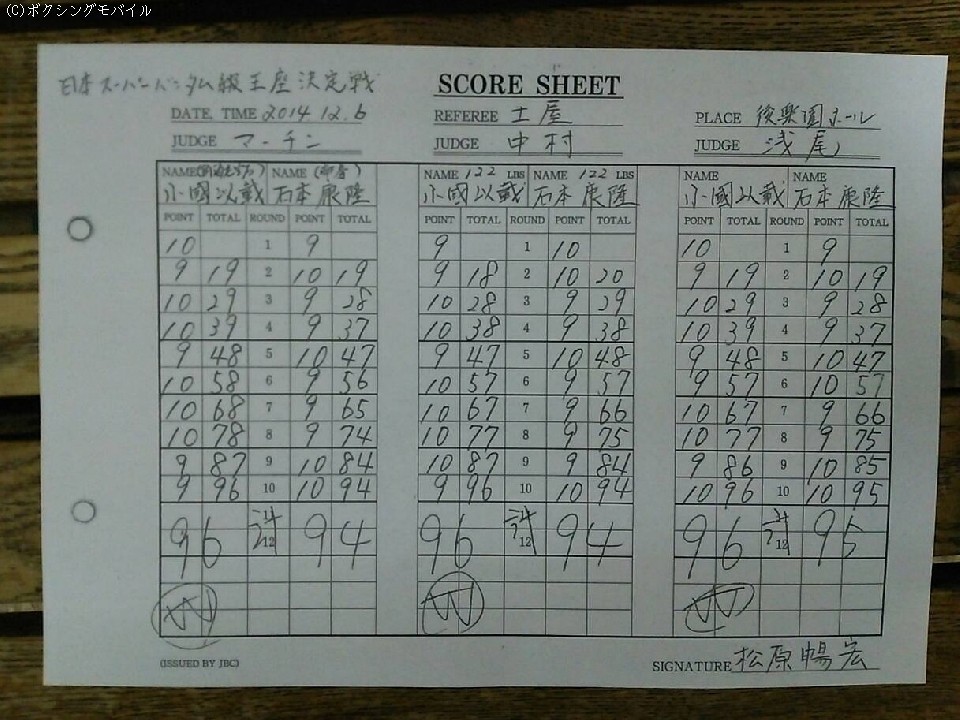 (C)ボクシングモバイル
日本スーパーバンタム級王座決定戦
SCORE SHEET
DATE, TIME 2014.12.6 REFEREE 土屋 PLACE 後楽園ホール
JUDGE マーチン JUDGE 中村 JUDGE 浅尾
NAME NAME NAME 122 LBS NAME 122 LBS NAME NAME
小國以載 石本康隆 小國以載 石本康隆 小國以載 石本康隆
POINT TOTAL ROUND POINT TOTAL POINT TOTAL ROUND POINT TOTAL POINT TOTAL ROUND POINT TOTAL
10 1 9 9 1 10 10 1 9
9 19 2 10 19 9 18 2 10 20 9 19 2 10 19
10 29 3 9 28 10 28 3 9 29 10 29 3 9 28
10 39 4 9 37 10 38 4 9 38 10 39 4 9 37
9 48 5 10 47 9 47 5 10 48 9 48 5 10 47
10 58 6 9 56 10 57 6 9 57 9 57 6 10 57
10 68 7 9 65 10 67 7 9 66 10 67 7 9 66
10 78 8 9 74 10 77 8 9 75 10 77 8 9 75
9 87 9 10 84 10 87 9 9 84 9 86 9 10 85
9 96 10 10 94 9 96 10 10 94 10 96 10 10 95
96 計 12 94 96 計 12 94 96 計 12 95
W W W
(ISSUED BY JBC) SIGNATURE 松原暢宏